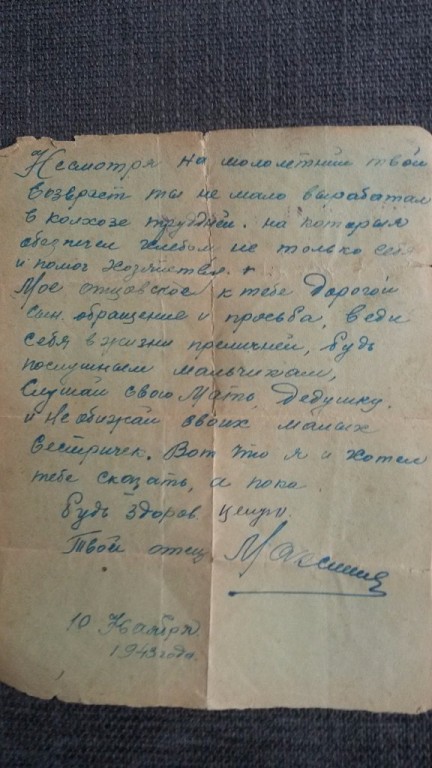 Несмотря на молометний твой
возвраст ты не мало выработал
в колхозе трудней. на которыя
обезпечил хлебом не только себя
и помог хозяйства.
Мое отцовское к тебе дорогой
сын. обращение и просьба, веди
себя в жизни преличней, будь
послушным мальчиком,
Слушай свою Мать, Дедушку,
и Не обижай своих малых
сестричек. Вот что я и хотел
тебе сказать, а пока
будь здоров целую.
Твой отец
10 Ноября
1943 года.